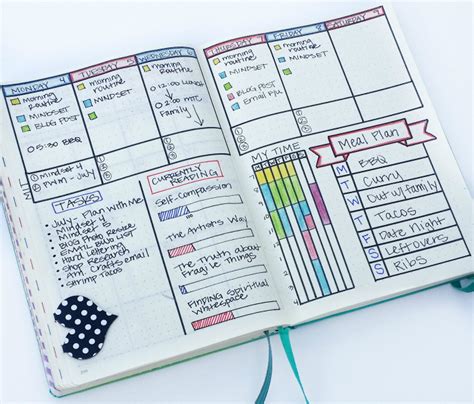 MONDAY 4
morning routine
MINDSET
BLOG POST
5:30 BBQ
TUESDAY 5
morning routine
MINDSET
WEDNESDAY 6
morning routine
12:00 LUNCH
2:00
Family
THURSDAY 7
morning routine
MINDSET
BLOG POST
Email
FRIDAY 8
MINDSET
SATURDAY 9
① Mindset 4
② - July
③
①
②
③
TASKS
July - Plan with Me
Mindset 4
Mindset 5
BLOG Photo
EMAIL LIST
Hand Lettering
Shop Research
Crafts email
Shrimp Tacos
CURRENTLY READING
Self-Compassion
The Artist's Way
The Truth about Fragile Things
FINDING Spiritual Whitespace
MY TIME
M T W T F S S
Meal Plan
M BBQ
T Curry
W Out w/family
T Tacos
F Date Night
S Leftovers
S Ribs